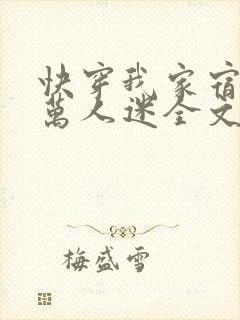 快穿我家宿
萬人迷全文
梅盛雪